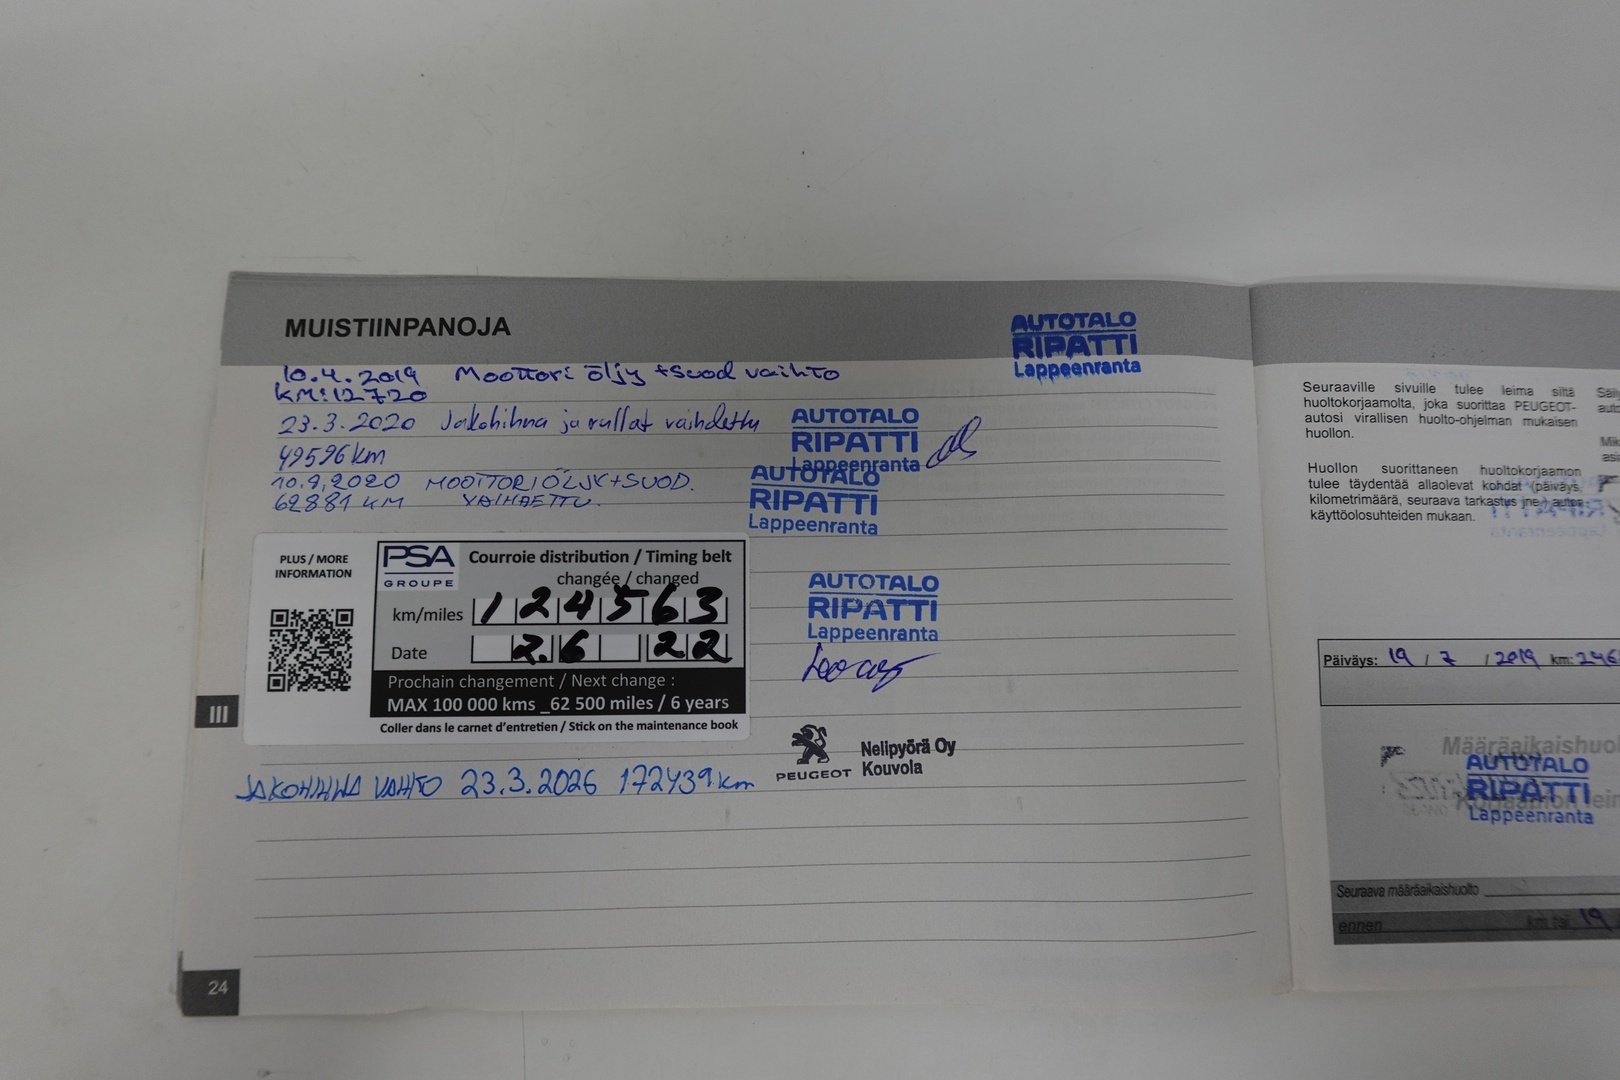 MUISTIINPANOJA
AUTOTALO
RIPATTI
Lappeenranta
10.4.2019 Moottori öljy +suod vaihto
KM:12720
23.3.2020 Jakohihna ja rullat vaihdettu
49596 km
AUTOTALO
RIPATTI
Lappeenranta
10.9.2020 MOOTTORIÖLJY+SUOD.
62881 KM VAIHDETTU.
AUTOTALO
RIPATTI
Lappeenranta
PLUS / MORE
INFORMATION
PSA
GROUPE
Courroie distribution / Timing belt
changée / changed
km/miles 124563
Date 2.6 22
Prochain changement / Next change :
MAX 100 000 kms _62 500 miles / 6 years
Coller dans le carnet d'entretien / Stick on the maintenance book
AUTOTALO
RIPATTI
Lappeenranta
PEUGEOT
Nelipyörä Oy
Kouvola
JAKOHIHNA VAIHTO 23.3.2026 172439 km
III
24
Seuraaville sivuille tulee leima siltä
huoltokorjaamolta, joka suorittaa PEUGEOT-
autosi virallisen huolto-ohjelman mukaisen
huollon.
Huollon suorittaneen huoltokorjaamon
tulee täydentää allaolevat kohdat (päiväys,
kilometrimäärä, seuraava tarkastus jne.) auton
käyttöolosuhteiden mukaan.
Päiväys: 19 / 7 / 2019 km: 246
Määräaikaishuol
AUTOTALO
RIPATTI
Lappeenranta
Seuraava määräaikaishuolto
ennen km tai 19